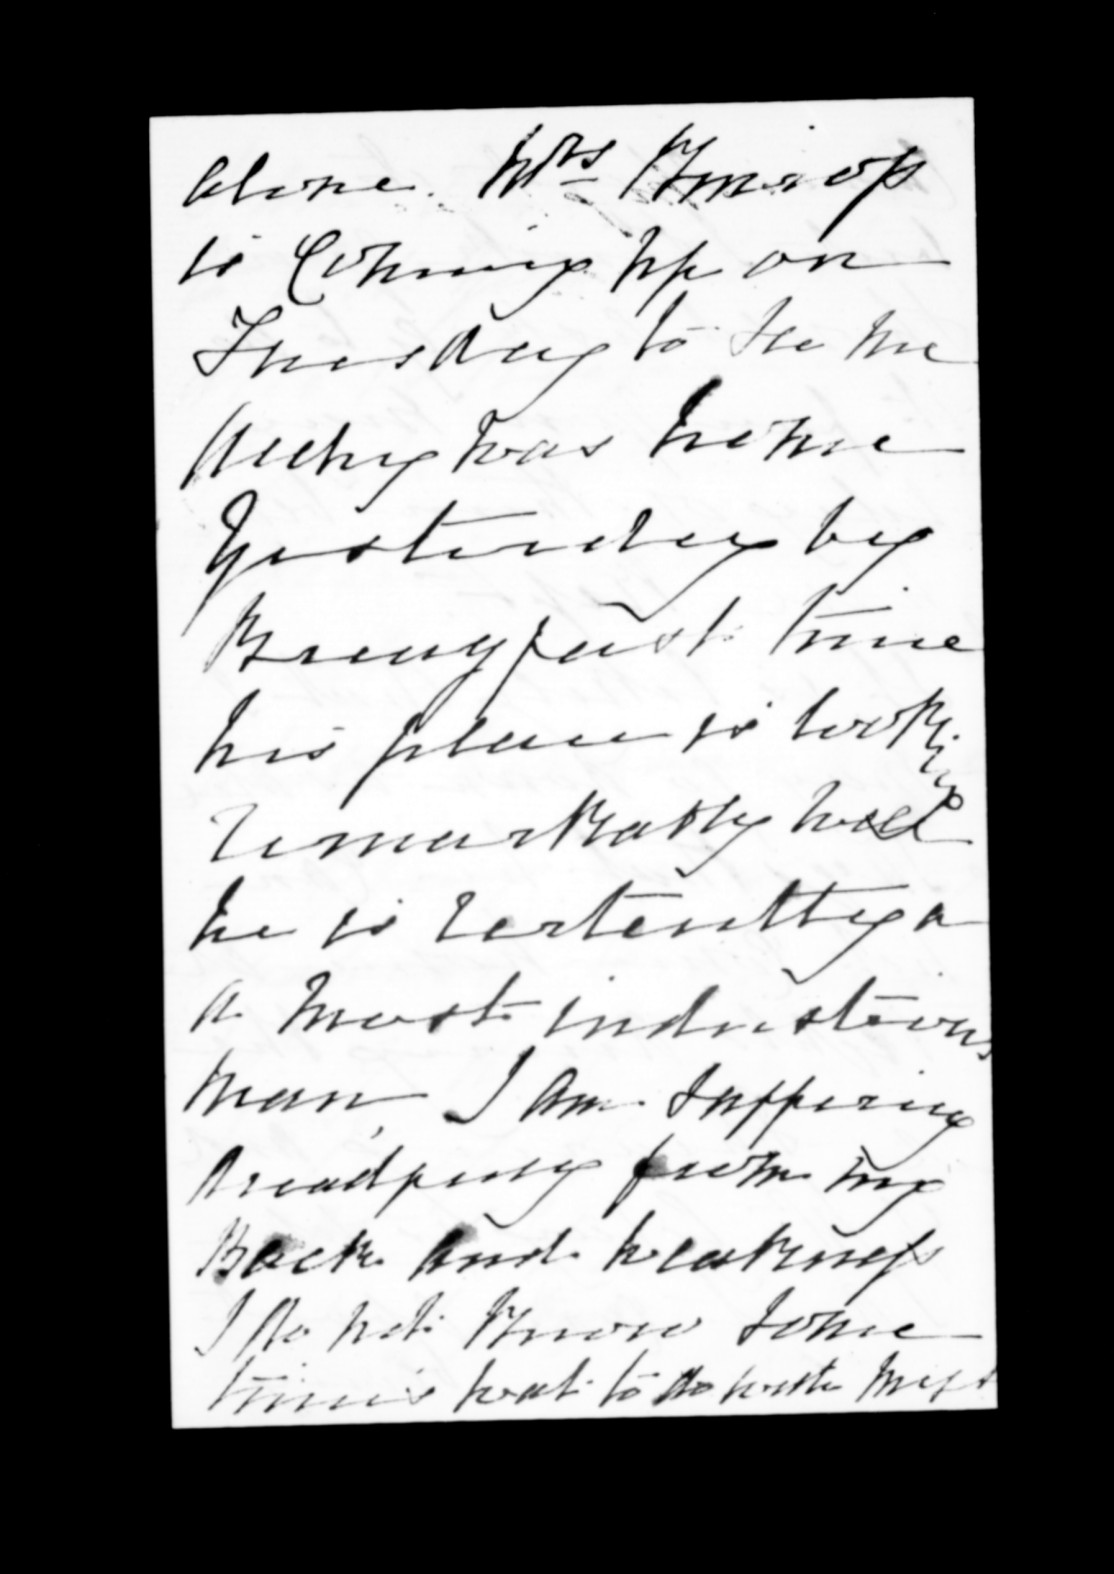 alone. Mrs Kinross
is Coming up on
Tuesday to see me
Archy was home
Yesterday by
Breuyfast time
his place is looking
remarkably well
he is certently a
a most industrious
man, I am suffering
dreadfully from my
Back and weakness
I do not know some
times wat to do with myse